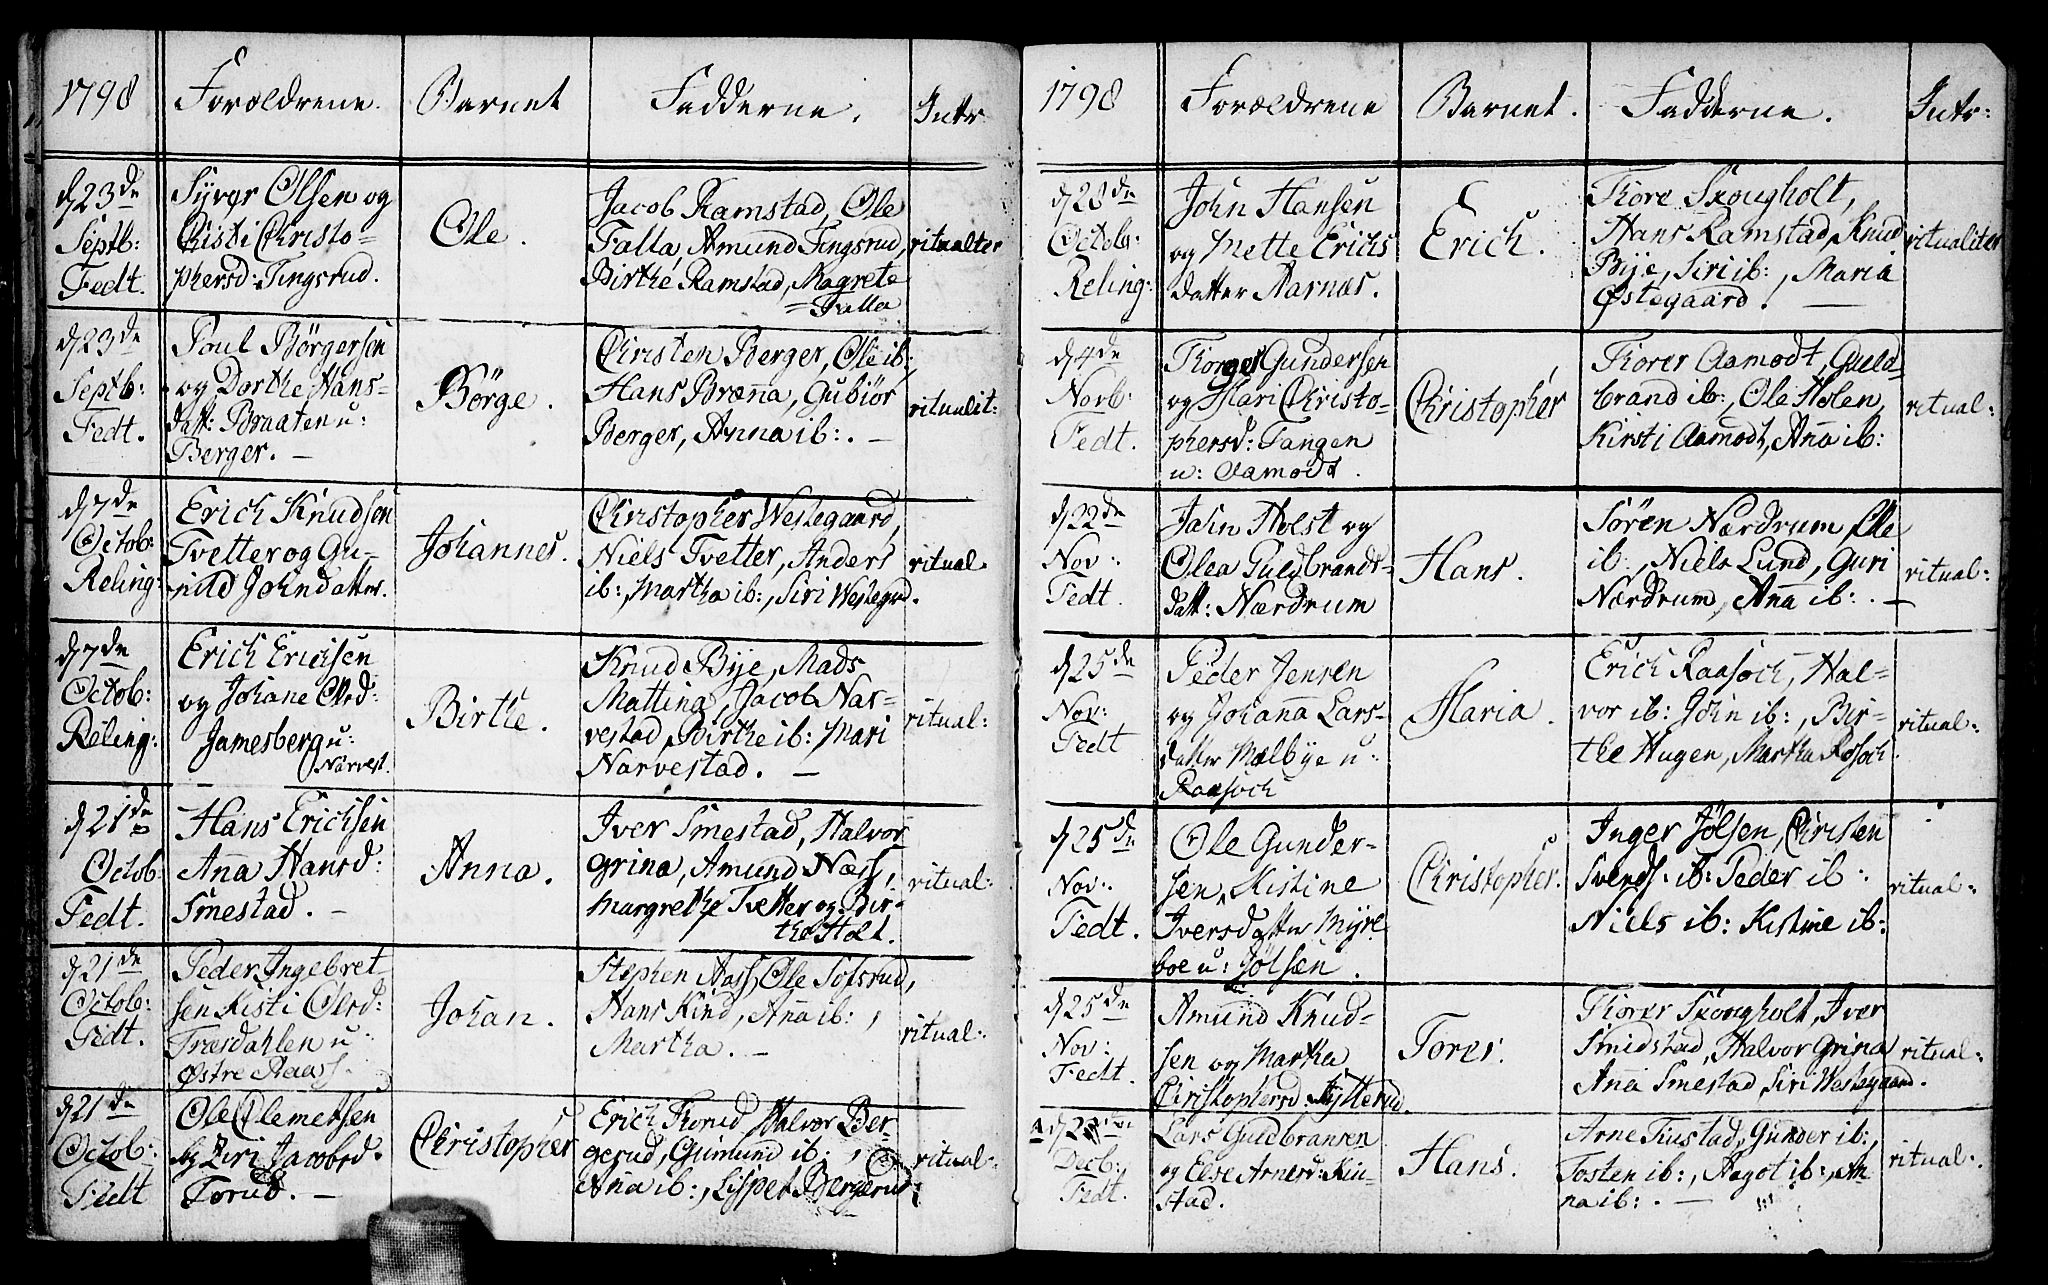 1798 Forældrene. Barnet Fadderne. Intr
d 23de
Septb:
Fedt.
Syver Olsen og
Kisti Christo-
phersd: Tingsrud.
Ole.
Jacob Ramstad, Ole
Falla, Amund Tingsrud,
Birthe Ramstad, Magrete
Falla
ritualter
d 23de
Septb:
Fedt.
Poul Börgersen
og Dorthe Hans-
datt: Braaten u:
Berger. –
Börge.
Christen Berger, Ole ib:
Hans Brænna, Gubiör
Berger, Anna ib:. –
ritualit:
d 7de
Octob:
Reling:
Erich Knudsen
Tvetter og Gu-
nild Johndatter.
Johannes.
Christopher Westegaard,
Niels Tvetter, Anders
ib:, Martha ib:, Siri Westegrd.
ritual.
d 7de
Octob:
Reling:
Erich Erichsen
og Johane Olsd:
Jamesberg u:
Narvest.
Birthe.
Knud Bye, Mads
Mattina, Jacob Nar-
vestad, Birthe ib: Mari
Narvestad. –
ritual:
d 21de
Octob:
Fedt.
Hans Erichsen
Anna Hansd:
Smestad. –
Anna.
Iver Smestad, Halvor
Grina, Amund Næss,
Margrethe Tvetter og Bir-
the Holt.
ritual:
d 21de
Octob:
Fedt.
Peder Ingebret
sen Kisti Olsd:
Træsdahlen u:
Østre Aaass.
Johan.
Stephen Aass, Ole Sofsrud,
Hans Kind, Anna ib:,
Martha. –
ritual:
d 21de
Octob:
Fedt
Ole Clemetsen
og Siri Jacobsd.
Torud. –
Christopher
Erich Torud Halvor Ber-
gerud, Gunund ib:,
Anna ib:, Lispet Bergerud:
ritual:
1798 Forældrene Barnet. Fadderne. Intr:
d 28de
Octobr:
Reling:
John Hansen
og Mette Erichs
datter Aarnæs.
Erich.
Thore Skougholt,
Hans Ramstad, Knud
Bye, Siri ib:, Maria
Østegaard. –
ritualiter
d 4de
Novb:
Fedt.
Thorger Gundersen
og Mari Christo-
phersd: Tangen
u: Aamodt.
Christopher
Thorer Aamodt, Guld-
brand ib:, Ole Holen,
Kirsti Aamodt, Anna ib:
ritual:
d 22de
Nov:
Fedt.
John Holst og
Olea Guldbrands-
datt: Nærdrum
Hans.
Sören Nærdrum, Ole
ib:, Niels Lund, Guri
Nærdrum, Anna ib:. –
ritual:
d 25de
Nov:
Fedt
Peder Jensen
og Johanna Lars-
datter Mælbye u:
Raasoch
Maria.
Erich Raasoch, Hal-
vor ib: John ib:, Bir-
the Hugen, Martha Rosoch.
ritual:
d 25de
Nov:
Fedt.
Ole Gunder-
sen, Kistine
Iversdatter Myre
boe u: Jölsen.
Christopher.
Inger Jölsen, Christen
Svends: ib: Peder ib:
Niels ib: Kistine ib:
ritual:
d 25de
Nov:
Fedt.
Amund Knud-
sen og Martha
Christophersd: Hytterud.
Torer.
Thorer Skougholt, Iver
Smidstad, Halvor Grina
Anna Smestad, Siri Westegaard.
ritual:
Decb:
Fedt.
Lars Guldbransen
og Else Arnesd: Kiu-
stad.
Hans.
Arne Kiustad, Gunder ib:,
Tosten ib:, Aagot ib:, An-
na ib:. –
ritual: